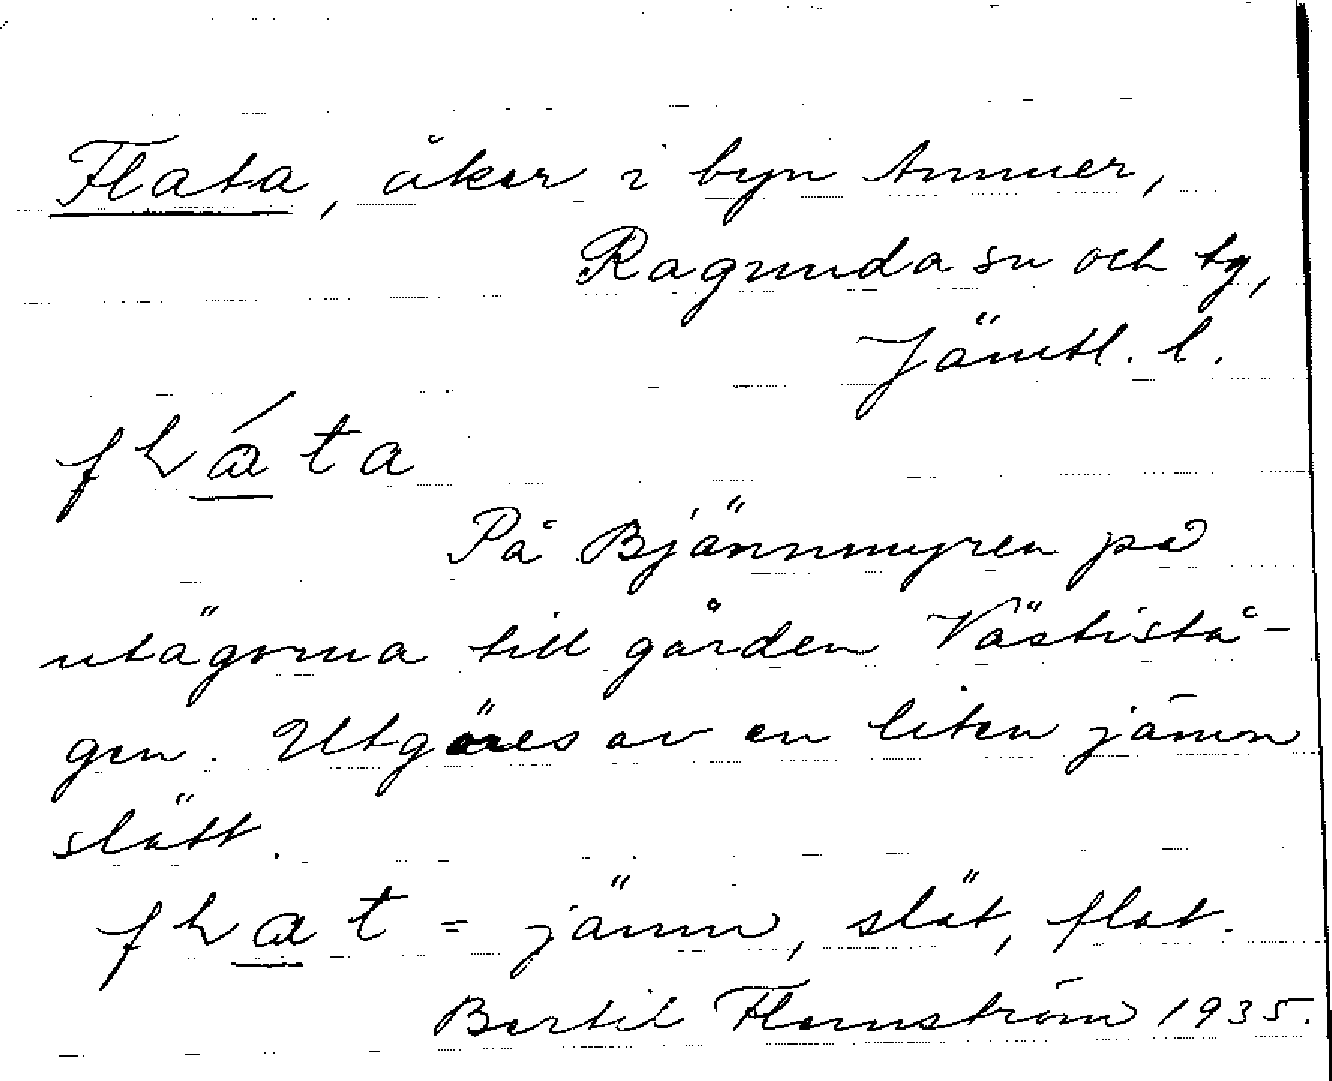 Flata, åker i byn Ammer,
Ragunda sn och tg,
Jämtl. l.
fɫáta
På Bjännmyren på
utägorna till gården Västistå-
gen. Utgöres av en liten jämn
slätt.
fɫat = jämn, slät, flat.
Bertil Flemström 1935.